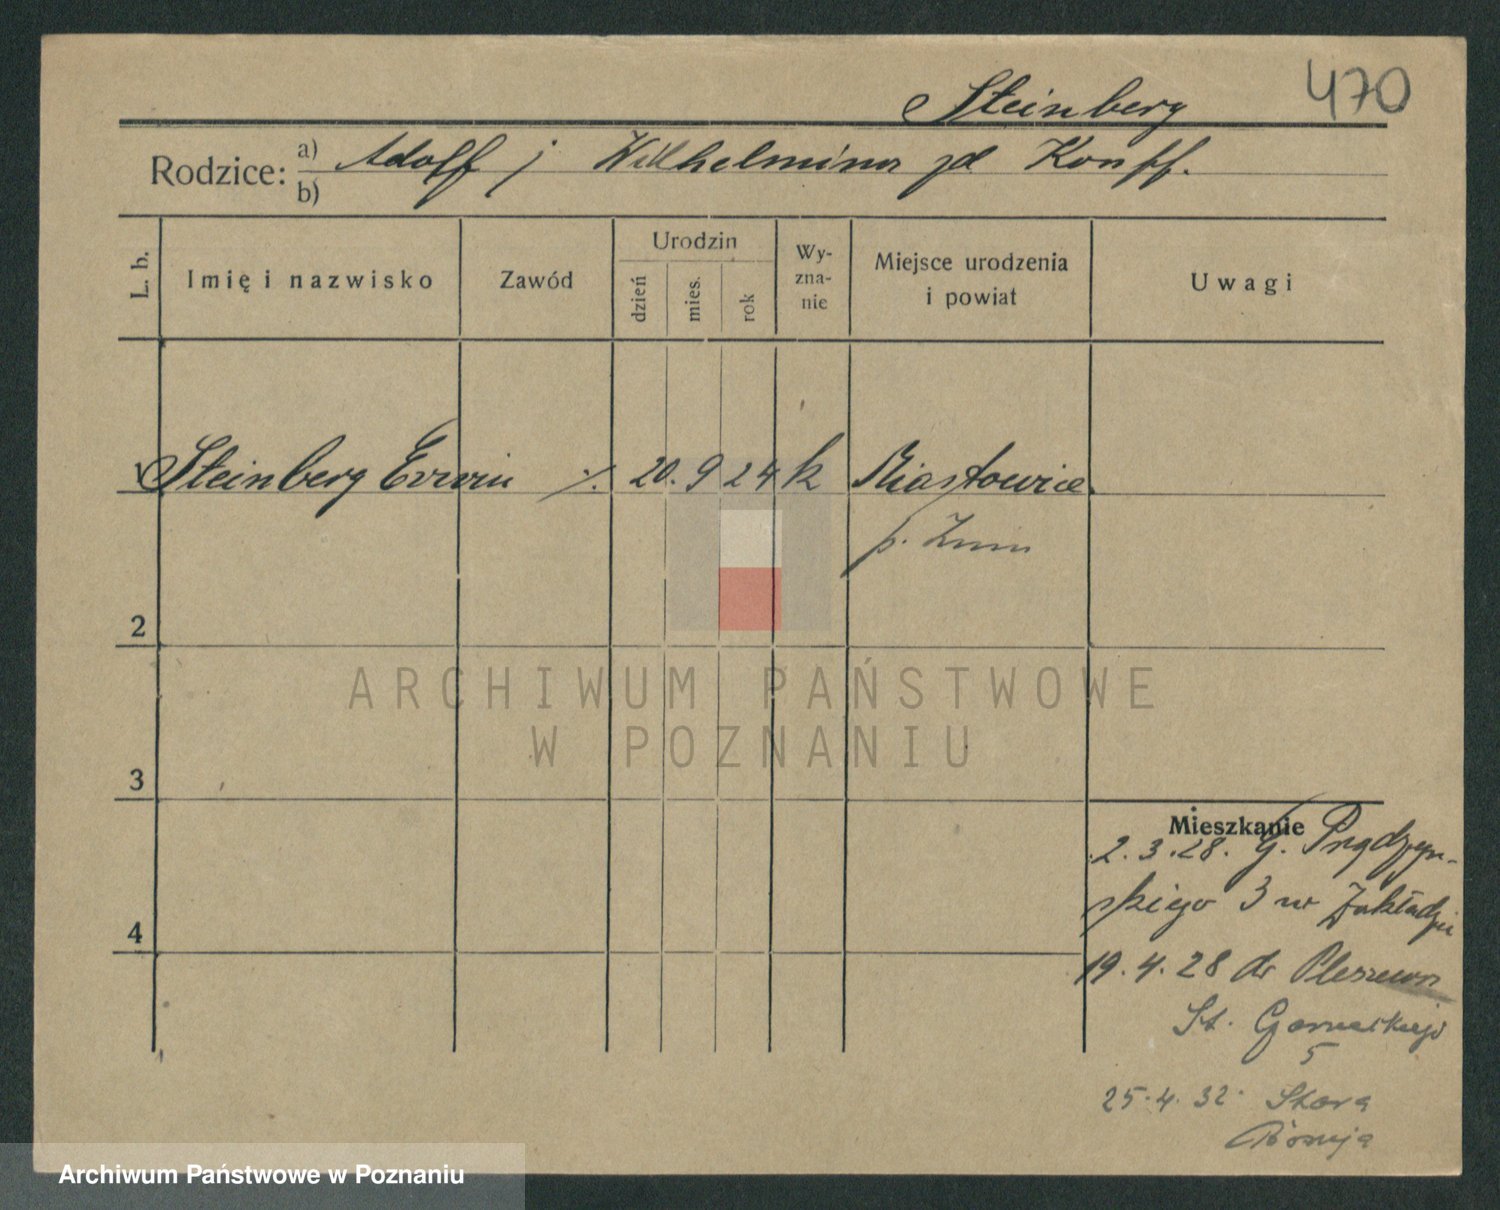 Steinberg
470
Rodzice: a) Adolf j Wilhelmina zd Kopff.
b)
L. b.
Imię i nazwisko
Zawód
Urodzin
dzień
mies.
rok
Wy-
zna-
nie
Miejsce urodzenia
i powiat
Uwagi
1 Steinberg Erwin ./. 20. 9 24 k Biastowice
p. Znin
2
ARCHIWUM PAŃSTWOWE
W POZNANIU
3
Mieszkanie
2.3.28. G. Prądzyń-
skiego 3 w Zakładzie
4
19.4.28 do Pleszewa
St.
5
25.4.32. Stara
Archiwum Państwowe w Poznaniu